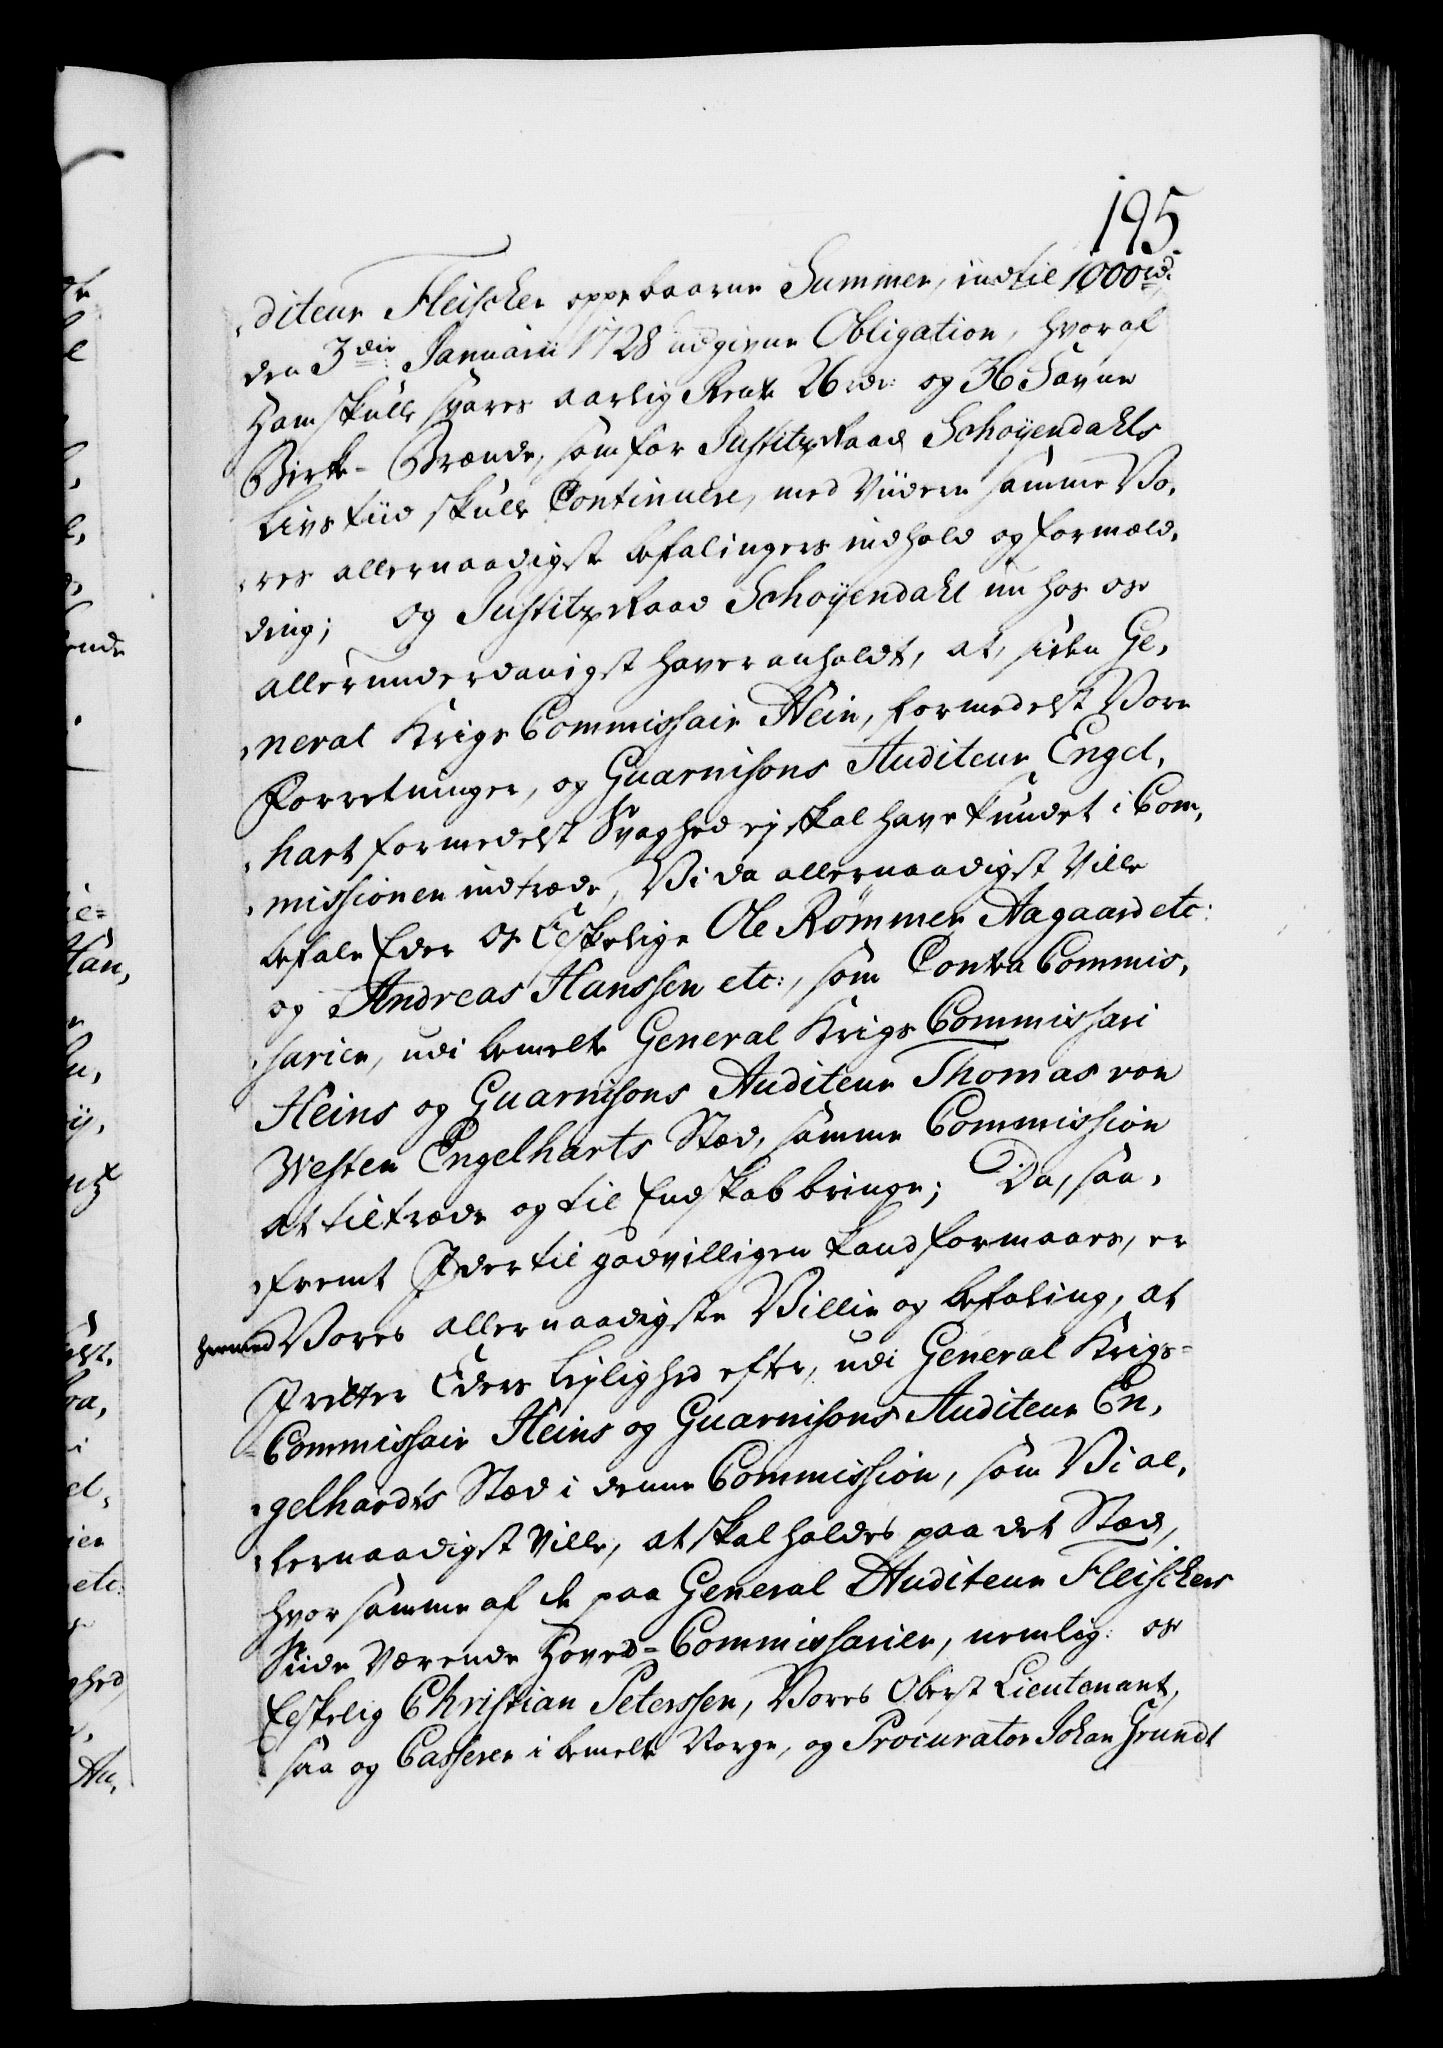 195.
diteur Fleischer oppebaarne Summer, indtil 1000 rd.
den 3die Januarii 1728 udgivne Obligation, hvoraf
Ham skulle svares aarlig Rente 26 rdr: og 36 Favne
Birke-Brænde, som for Justitz Raad Schøyendahls
Livs tiid skulle Continuere, med Viidere samme Vo,
res allernaadigste befalingers indhold og formæld,
ding; og Justitz Raad Schøyendahl nu hos os
allerunderdanigst haver anholdt, at, siden Ge,
neral Krigs Commissair Hein, formedelst Vore
Forretninger, og Guarnisons Auditeur Engel,
hart formedelst Svaghed ej skal have kundet i Com,
missionen indtræde, Vi da allernaadigst Ville
befale Eder Os Elskelige Ole Rømmer Aagaard etc:
og Andreas Hanssen etc:, som Contra Commis,
sarier, udi bemelte General Krigs Commissari
Heins og Guarnisons Auditeur Thomas von
Westen Engelharts Stæd, samme Commission
at tiltræde og til Endskab bringe; Da, saa,
fremt I dertil godvilligen kand formaaes, er
hermed Vores allernaadigste Villie og befaling, at
I retter Eders lejlighed efter, udi General Krigs-
Commissair Heins og Guarnisons Auditeur En,
gelhardts Stæd i denne Commission, som Vi al,
lernaadigst Ville, at skal holdes paa det Stæd,
hvor samme af de paa General Auditeur Fleischers
Siide Værende Hoved-Commissarier, nemlig: os
Elskelig Christian Peterssen, Vores Oberst Lieutenant,
saa og Casserer i bemelte Norge, og Procurator Johan Grundt